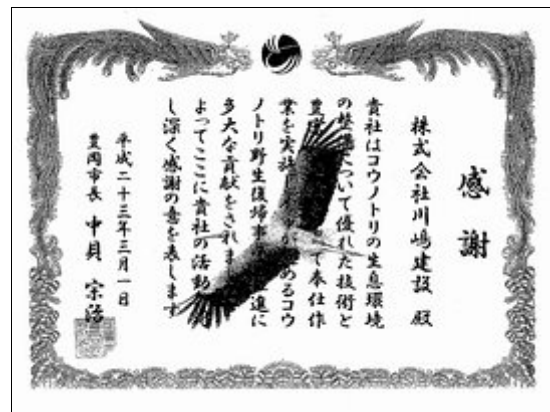 感謝
株式会社川嶋建設 殿
貴社はコウノトリの生息環境
の整備について優れた技術と
豊 て奉仕作
業を実施し 進めるコウ
ノトリ野生復帰事 推進に
多大な貢献をされま
よってここに貴社の活動
し深く感謝の意を表します
平成二十三年三月一日
豊岡市長 中貝 宗治